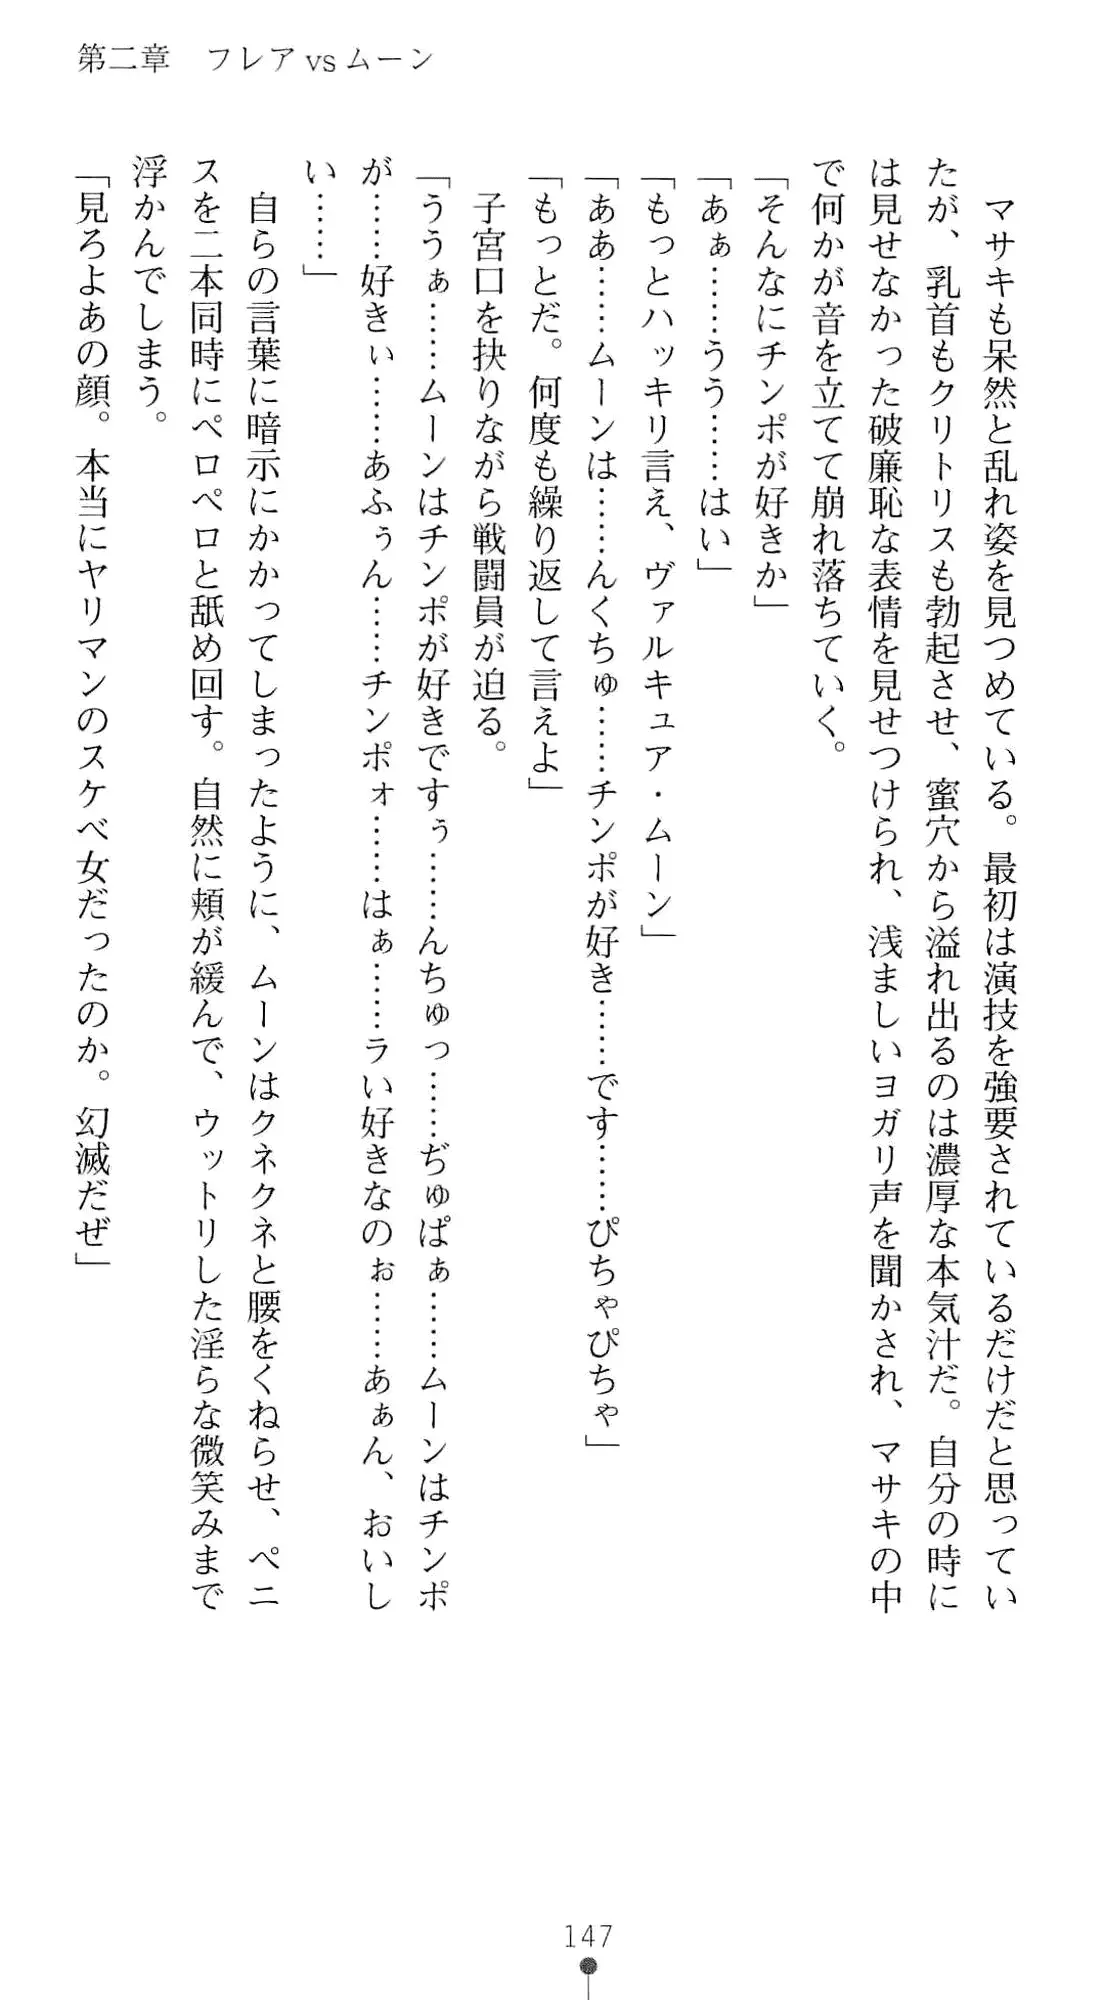 第二章　フレアvsムーン
　マサキも呆然と乱れ姿を見つめている。最初は演技を強要されているだけだと思ってい
たが、乳首もクリトリスも勃起させ、蜜穴から溢れ出るのは濃厚な本気汁だ。自分の時に
は見せなかった破廉恥な表情を見せつけられ、浅ましいヨガリ声を聞かされ、マサキの中
で何かが音を立てて崩れ落ちていく。
「そんなにチンポが好きか」
「あぁ……うう……はい」
「もっとハッキリ言え、ヴァルキュア・ムーン」
「ああ……ムーンは……んくちゅ……チンポが好き……です……ぴちゃぴちゃ」
「もっとだ。何度も繰り返して言えよ」
　子宮口を抉りながら戦闘員が迫る。
「ううぁ……ムーンはチンポが好きですぅ……んちゅっ……ぢゅぱぁ……ムーンはチンポ
が……好きぃ……あふぅん……チンポォ……はぁ……ラい好きなのぉ……あぁん、おいし
い……」
　自らの言葉に暗示にかかってしまったように、ムーンはクネクネと腰をくねらせ、ペニ
スを二本同時にペロペロと舐め回す。自然に頬が緩んで、ウットリした淫らな微笑みまで
浮かんでしまう。
「見ろよあの顔。本当にヤリマンのスケベ女だったのか。幻滅だぜ」
147